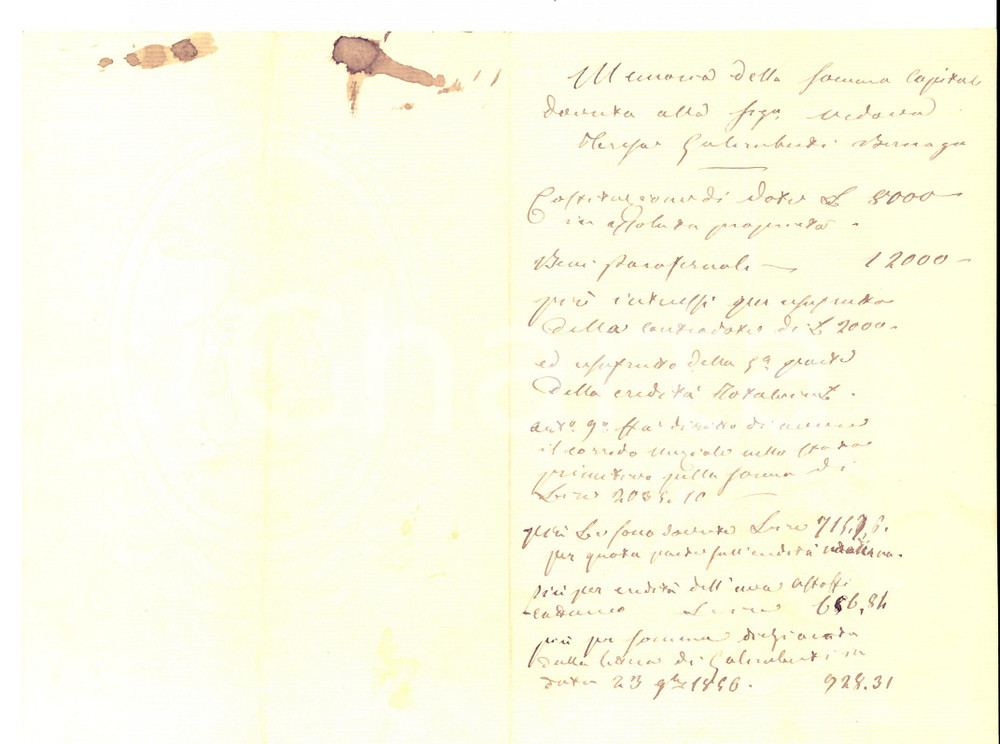 Memoria della somma Capitale
dovuta alla Sigª vedova
Galimberti Bernago
Costituzione di dote L 8000
in assoluta proprietà.
Beni parafernali — 12000 -
più interessi per usufrutto
della controdote di L 2000.
ed usufrutto della 5ª parte
della eredità
diritto di avere
il corredo nuziale nello stato
primitivo sulla somma di
Lire 2088.10
più Le sono dovute Lire
per quota parte sull'eredità materna.
più per eredità dell'ava
Lire 686,84
più per somma dichiarata
dalla di Galimberti in
data 23 9bre 1886. 928.31